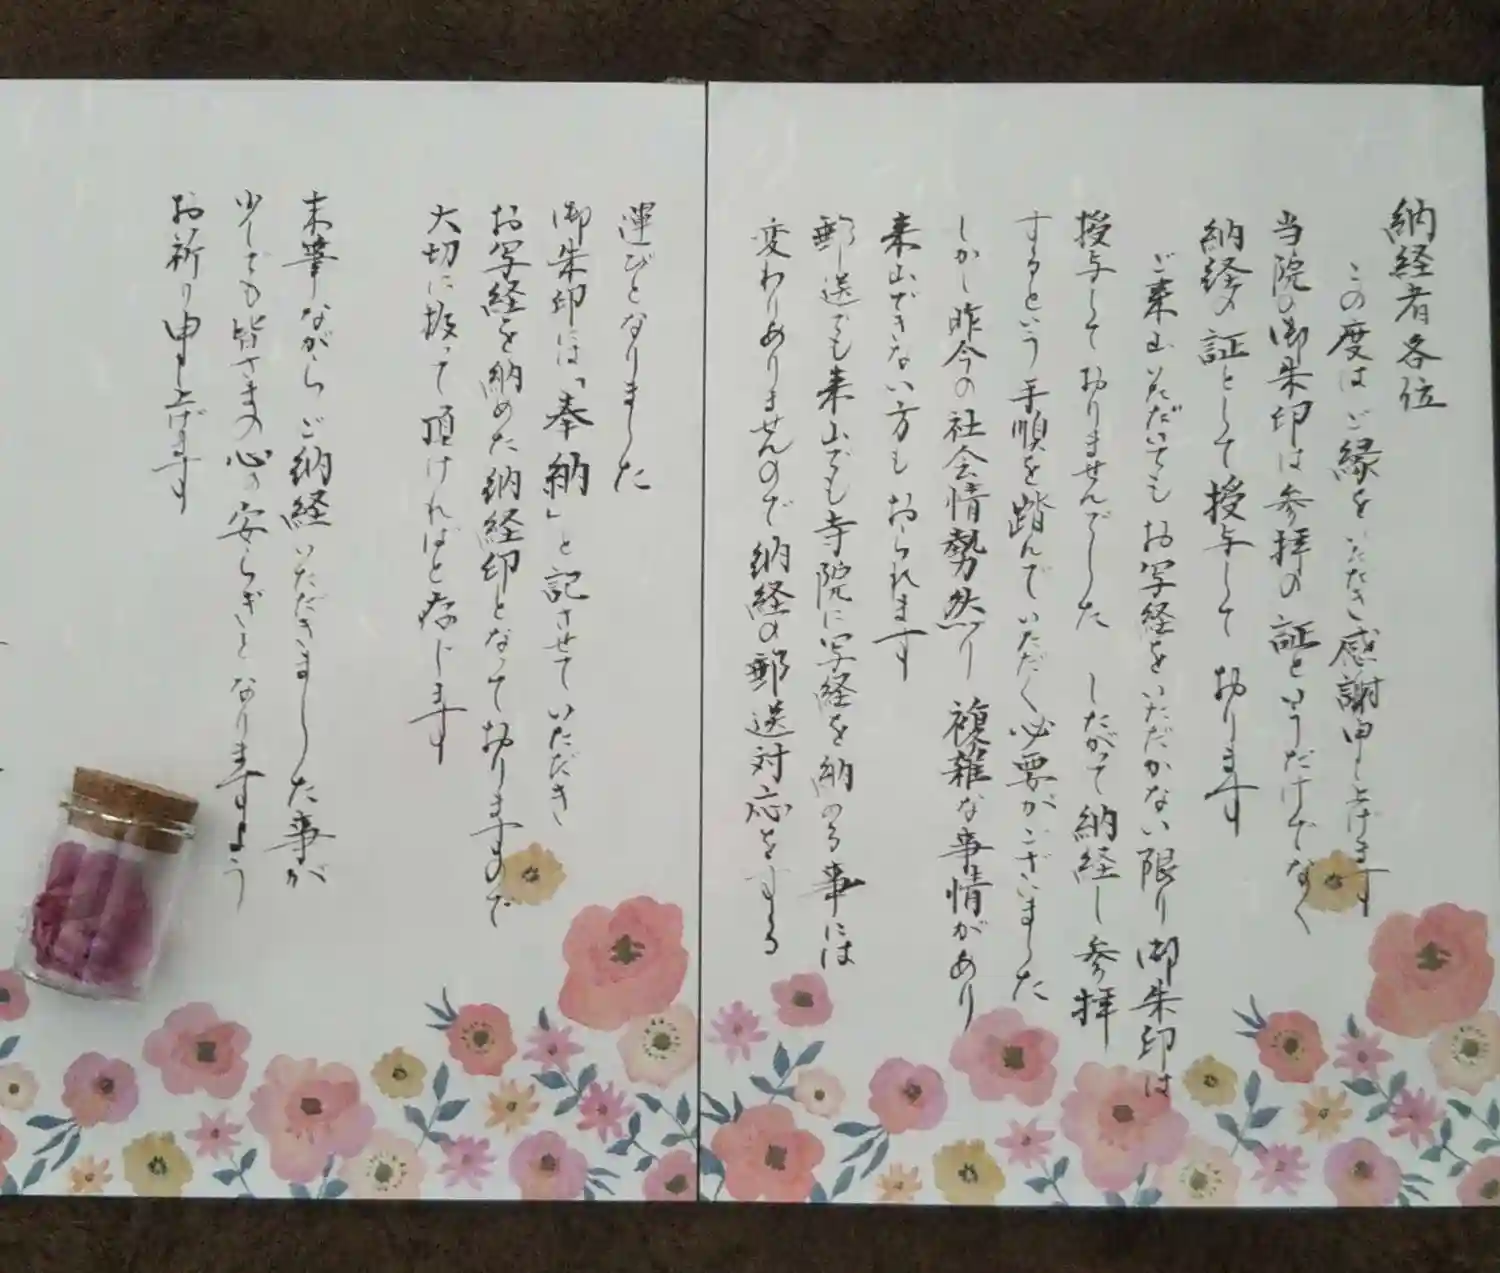 納経者各位
この度はご縁をいただき感謝申し上げます
当院の御朱印は参拝の証というだけでなく
納経の証として授与して おります
ご来山いただいても お写経をいただかない限り御朱印は
授与して おりませんでした したがって納経し参拝
するという手順を踏んでいただく必要がございました
しかし昨今の社会情勢然り 複雑な事情があり
来山できない方も おられます
郵送でも来山でも寺院に写経を納める事には
変わりありませんので納経の郵送対応をする
運びとなりました
御朱印には「奉納」と記させていただき
お写経を納めた納経印となって おりますので
大切に扱って頂ければと存じます
末筆ながら ご納経いただきました事が
少しでも皆さまの心の安らぎと なりますよう
お祈り申し上げます